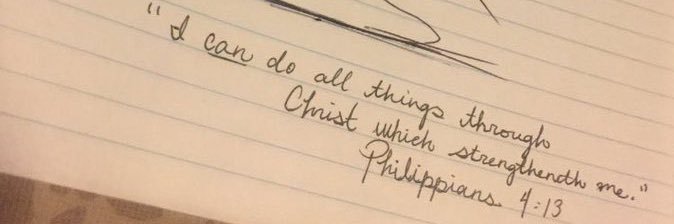 "I can do all things through
Christ which strengtheneth me."
Philippians 4:13